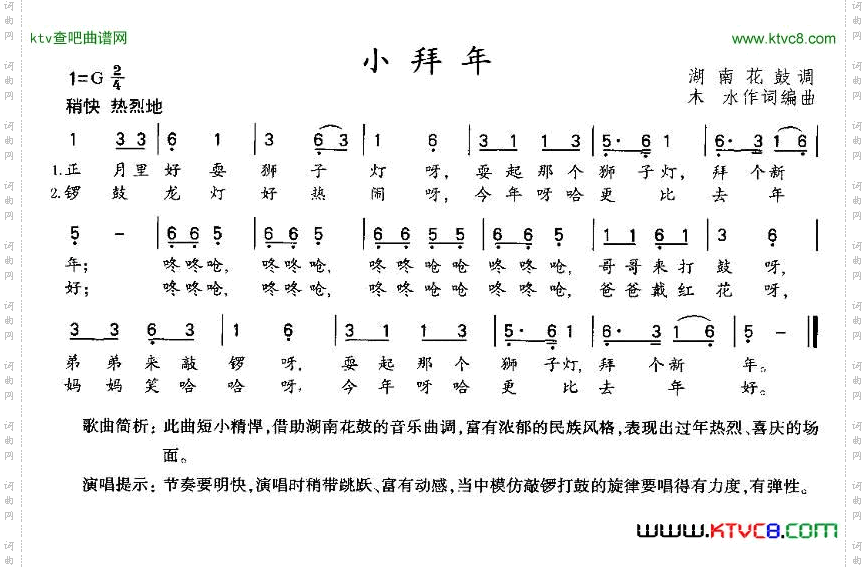 ktv查吧曲谱网
www.ktvc8.com
小拜年
1=G 2/4
湖南花鼓调
稍快 热烈地
木 水作词编曲
1 3 3 | 6 1 | 3 6 3 | 1 6 | 3 1 1 3 | 5· 6 1 | 6· 3 1 6 |
1.正 月里 好 耍 狮 子 灯 呀, 耍 起 那 个 狮 子 灯, 拜 个 新
2.锣 鼓 龙 灯 好 热 闹 呀, 今 年 呀 哈 更 比 去 年
5 - | 6 6 5 | 6 6 5 | 6 6 5 5 | 6 6 5 5 | 1 1 6 1 | 3 6 |
年; 咚咚呛, 咚咚呛, 咚咚呛 咚咚呛, 咚咚呛 咚咚呛, 哥哥来打 鼓 呀,
好; 咚咚呛, 咚咚呛, 咚咚呛 咚咚呛, 咚咚呛 咚咚呛, 爸爸戴红 花 呀,
3 3 6 3 | 1 6 | 3 1 1 3 | 5· 6 1 | 6· 3 | 1 6 | 5 - ‖
弟 弟 来 敲 锣 呀, 耍 起 那 个 狮 子灯, 拜 个 新 年。
妈 妈 笑 哈 哈 呀, 今 年 呀 哈 更 比 去 年 好。
歌曲简析:此曲短小精悍,借助湖南花鼓的音乐曲调,富有浓郁的民族风格,表现出过年热烈、喜庆的场
面。
演唱提示:节奏要明快,演唱时稍带跳跃、富有动感,当中模仿敲锣打鼓的旋律要唱得有力度,有弹性。
WWW.KTVC8.COM
词曲网
词曲网
词曲网
词曲网
词曲网
词曲网
词曲网
词曲网
词曲网
词曲网